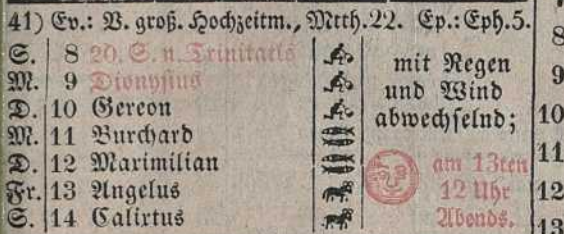 41) Ev.: V. groß. Hochzeitm., Mtth. 22. Ep.: Eph. 5.
S. 8 20. S. n. Trinitatis
M. 9 Dionysius
D. 10 Gereon
M. 11 Burchard
D. 12 Maximilian
Fr. 13 Angelus
S. 14 Calixtus
mit Regen
und Wind
abwechselnd;
am 13ten
12 Uhr
Abends.
8
9
10
11
12
13